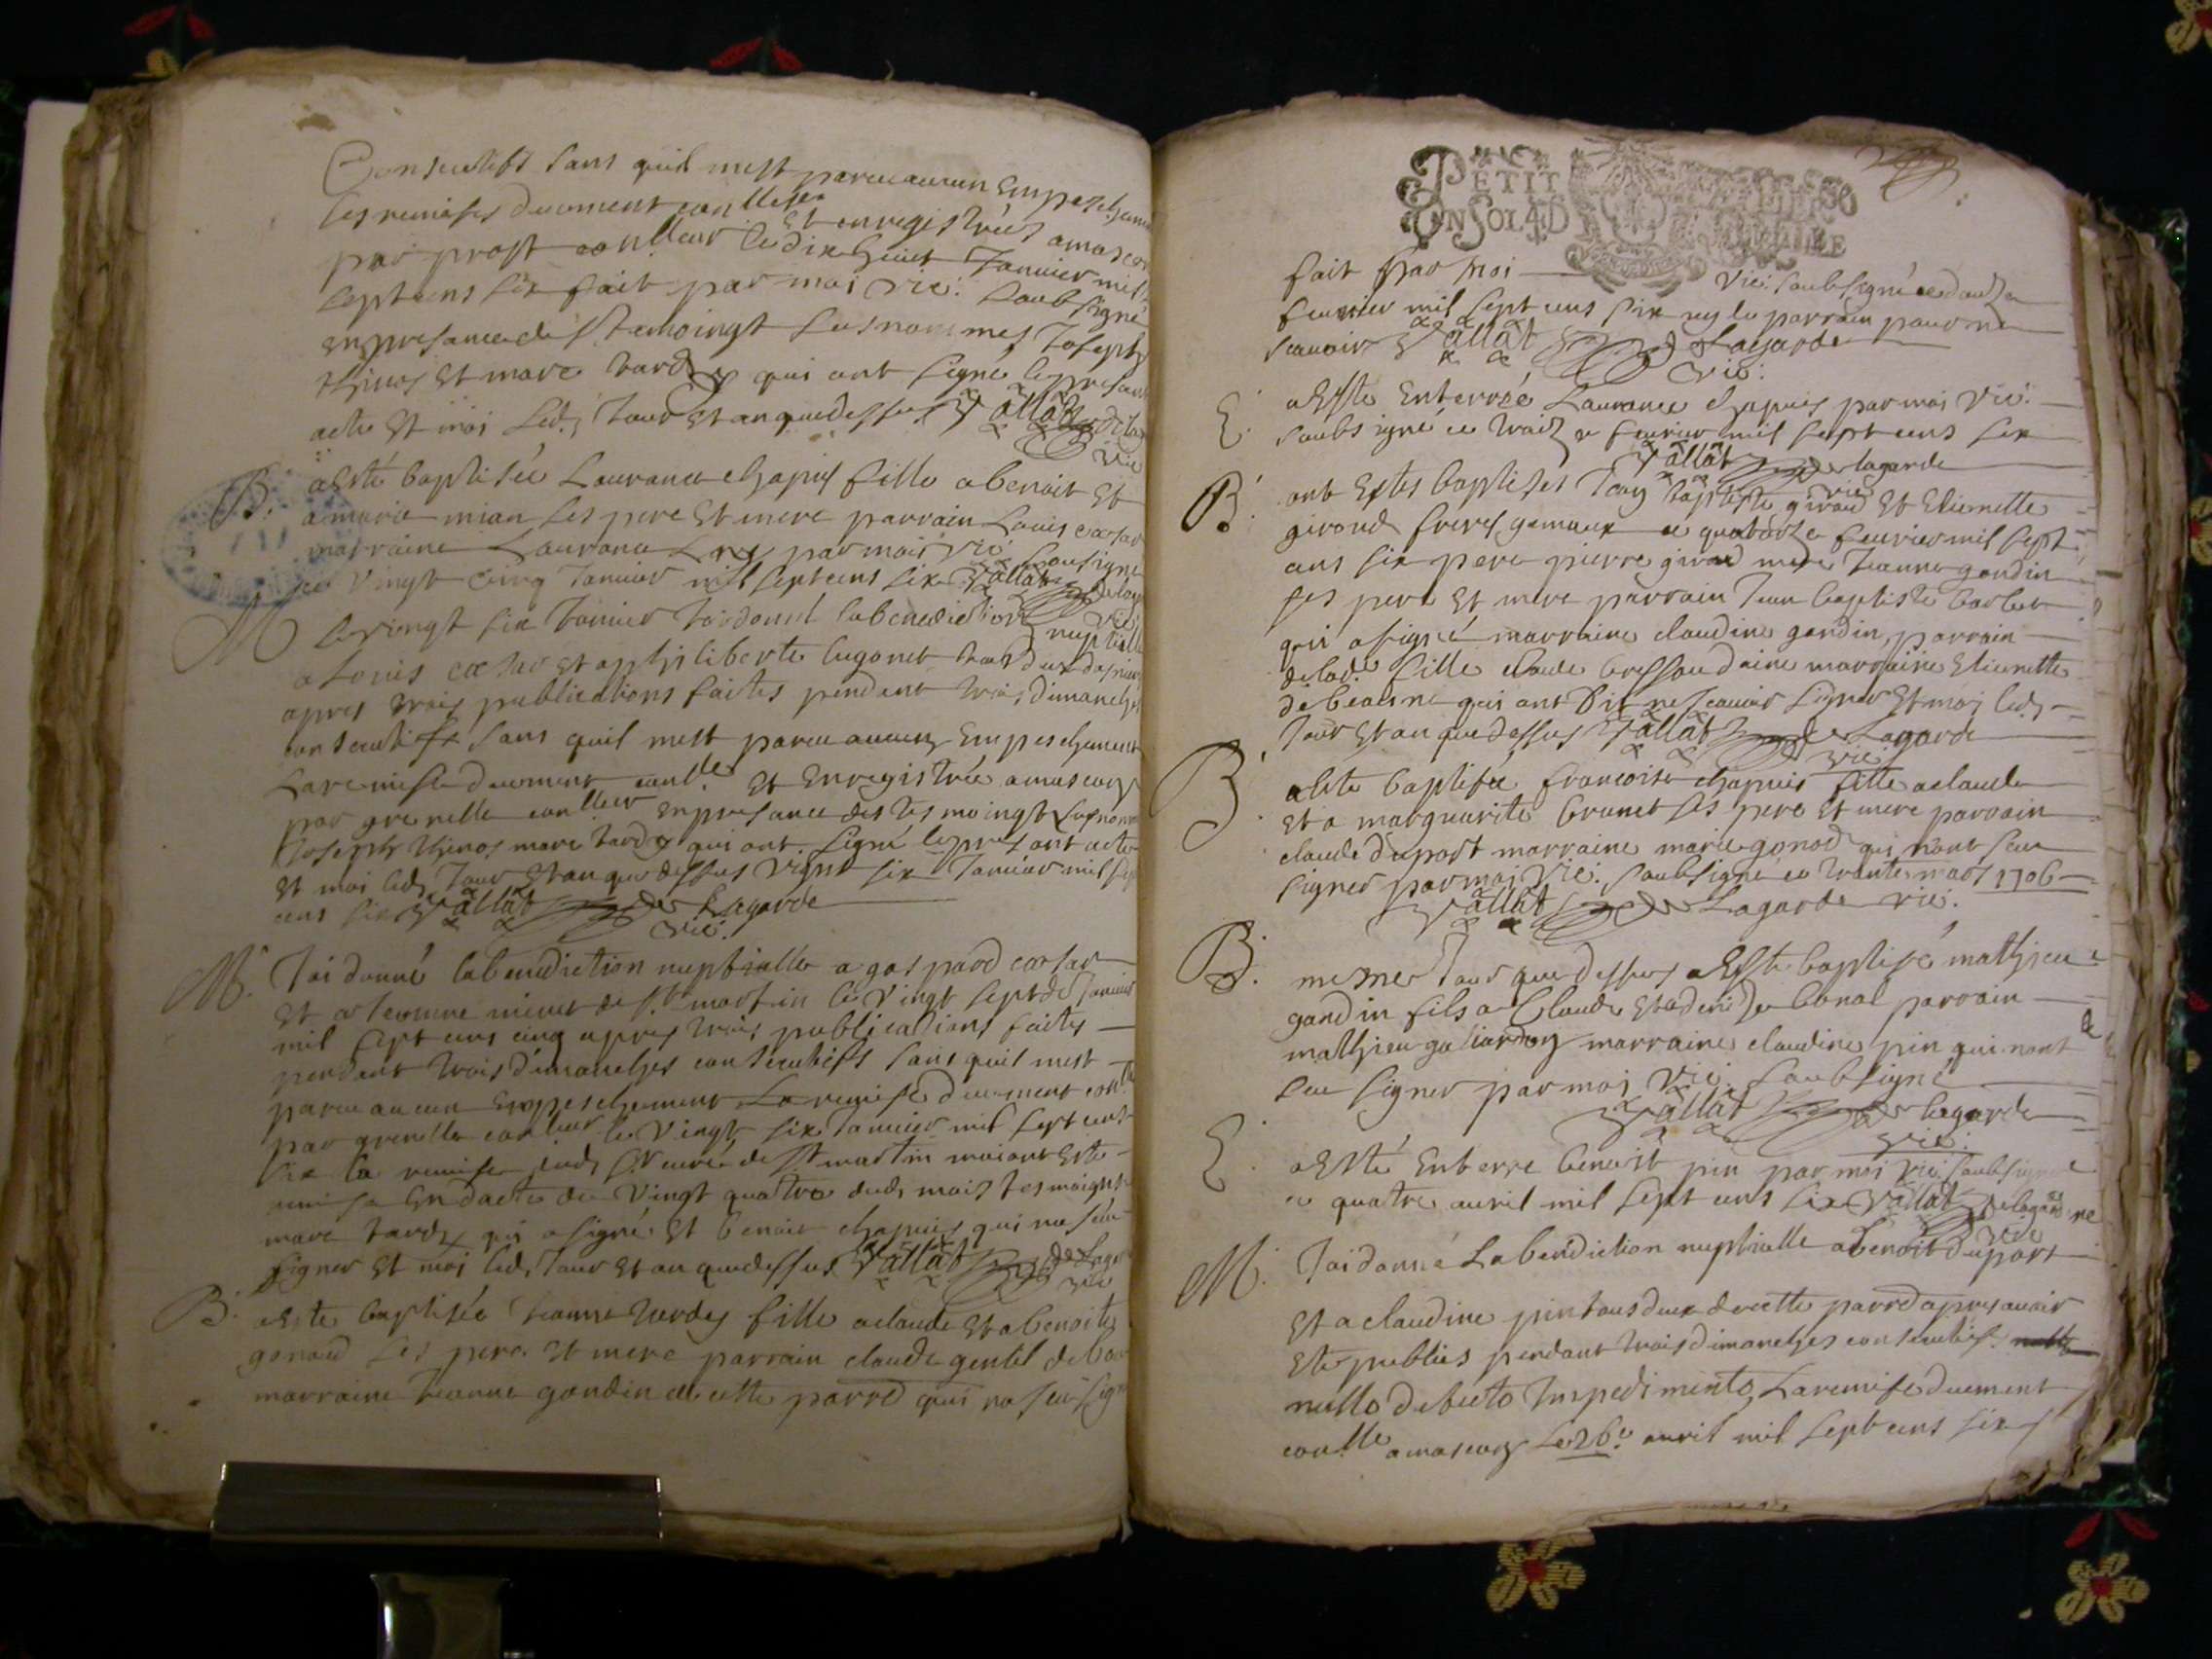 Consecutifs sans quil mest pareu aucun Empeschem
les remises duement conllees Et enregistrées a mascon
par prost conlleur le dix huict Januier mil
sept cens six fait par moi vic. soubsigné
en presance des temoingt susnommes Joseph
thinos Et marc tardy qui ont signé le presant
acte Et moi led. Jour Et an que dessus Vallat delag
vic
B. a Esté baptisée Laurance chapuis fille a benoit Et
a marie mian ses pere Et mere parrain Louis cæsar
marraine Laurance par moi vic. sousigné
ce vingt cinq Januier mil sept cens six Vallat delag
vic
M le vingt six Januier Jai donné la benediction nuptialle
a Louis cæsar Et a liberte lugonet tous deux
apres trois publications faites pendant trois dimanches
consecutifs sans quil mest pareu aucun Empeschement
La remise duement conlle Et Enregistrée a mascon
par grenelle conlleur En presance des tesmoingt susnom
Joseph thinos marc tardy qui ont signé le presant acte
Et moi led. Jour Et an que dessus vignt six Januier mil sept
cens six Vallat de Lagarde
vic.
M. Jai donné la benediction nuptialle a gaspard cæsar
Et a Jeanne minet de st. martin le vingt sept de Januier
mil sept cens cinq apres trois publications faites
pendant trois dimanches consecutifs sans quil mest
pareu aucun Emppeschement La remise duement conlle
par grenelle conlleur le vingt six Januier mil sept cens
six la remise dud. sr curé de st martin maiant Esté
remise En dacte du vingt quatre dud. mois tesmoignt
marc tardy qui a signé Et benoit chapuis qui na seu
signer Et moi led. Jour Et an que dessus Vallat de Lagar
vic
B. a Este baptisée Jeanne tardy fille a claude Et a benoite
gonod ses pere Et mere parrain claude gentil de
marraine Jeanne gondin de cette parr. qui na seu sign
PETIT
EN SOL 4 D
fait par moi vic. soubsigné ce douze
feurier mil sept cens six nÿ le parrain pour ne
scauoir Vallat de Lagarde
vic.
E. a Esté Enterré Laurance chapuis par moi vic.
soubsigné ce traize feurier mil sept cens six
Vallat de lagarde
vic
B. ont Estés baptisés Jean baptiste giroud Et Etiennette
giroud freres gemeaux ce quatorze feurier mil sept
cens six pere pierre giroud mere Jeanne gondin
ses pere Et mere parrain Jean baptiste barbet
qui a signé marraine claudine gondin, parrain
de lad. fille claude bressoudaine marraine Etiennette
debeaune qui ont dit ne scauoir signer Et moi led.
Jour Et an que dessus Vallat de Lagarde
vic
B. a Esté baptisée francoise chapuis fille a claude
Et a marguerite brunet ses pere Et mere parrain
claude duport marraine marie gonod qui nont seu
signer par moi vic. soubsigné ce trente mars 1706
Vallat de Lagarde vic.
B. mesme Jour que dessus a Esté baptisé mathieu
gandin fils a Claude Et a denise bonal parrain
mathieu galiardon marraine claudine pin qui nont
seu signer par moi vic. soubsigné
Vallat de lagarde
vic.
E. a Esté Enterre benoist pin par moi vic. soubsigné
ce quatre auril mil sept cens six Vallat delagarde
vic
M. Jai donné La benediction nuptialle a benoit duport
Et a claudine pin tous deux de cette parr. apres auoir
Este publies pendant trois dimanches consecutifs
nullo detecto Impedimento, La remise duement
conlle a mascon Le 26e auril mil sept cens six